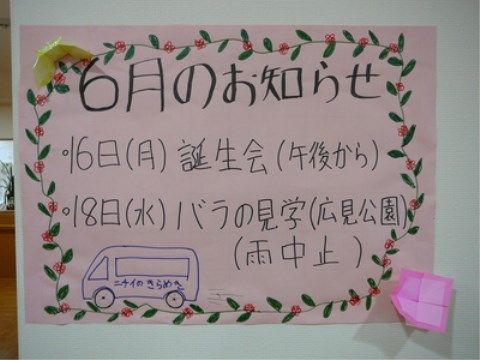 6月のお知らせ
16日(月) 誕生会(午後から)
18日(水) バラの見学(広見公園)
(雨中止)
ニチイのきらめき